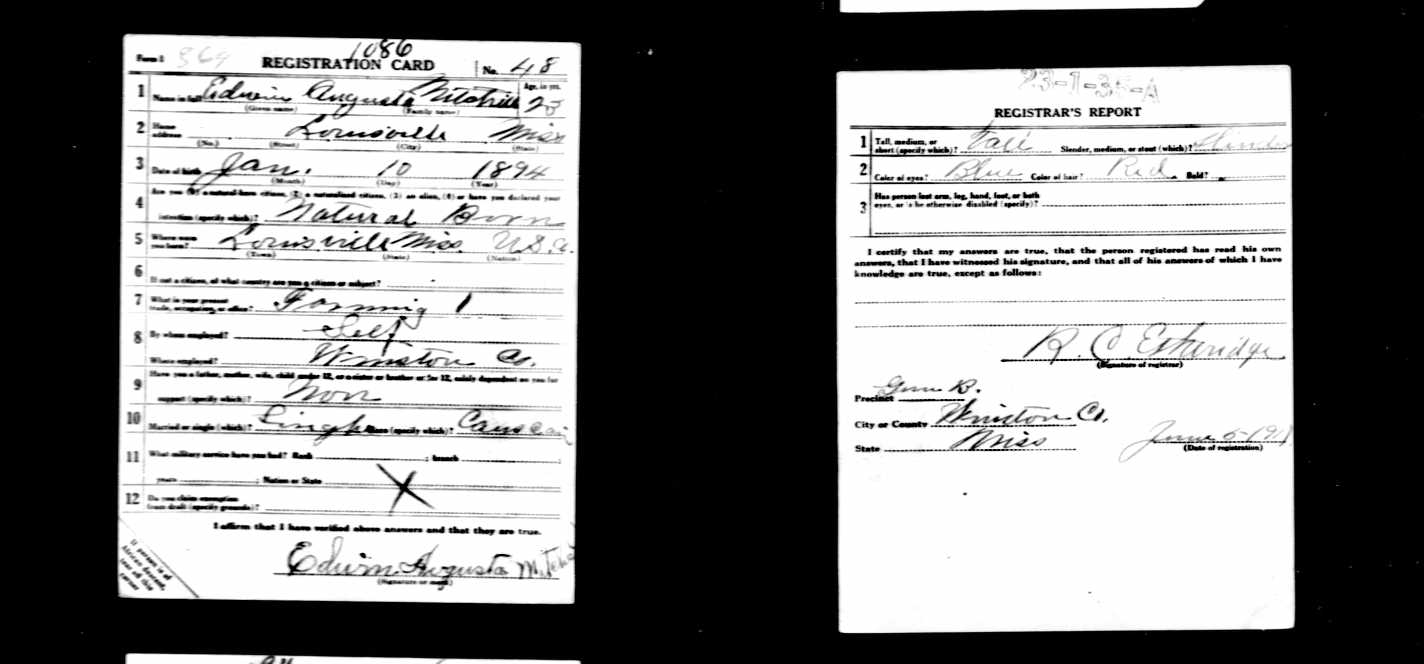 Form 1 364 REGISTRATION CARD 1086 No. 48
1 Name in full Edwin Augusta Mitchell Age, in yrs. 23
(Given name) (Family name)
2 Home address Louisville Miss
(No.) (Street) (City) (State)
3 Date of birth Jan. 10 1894
(Month) (Day) (Year)
4 Are you (1) a natural-born citizen, (2) a naturalized citizen, (3) an alien, (4) or have you declared your
intention (specify which)? Natural Born
5 Where were you born? Louisville Miss U.S.A.
(Town) (State) (Nation)
6 If not a citizen, of what country are you a citizen or subject?
7 What is your present trade, occupation, or office? Farming 1
8 By whom employed? Self
Where employed? Winston Co.
9 Have you a father, mother, wife, child under 12, or a sister or brother under 12, solely dependent on you for
support (specify which)? Non
10 Married or single (which)? Single Race (specify which)? Caucasian
11 What military service have you had? Rank ; branch ;
years ; Nation or State X
12 Do you claim exemption from draft (specify grounds)?
I affirm that I have verified above answers and that they are true.
Edwin Augusta Mitchell
(Signature or mark)
If person is of
African descent,
tear off this
corner
23-1-35-A
REGISTRAR'S REPORT
1 Tall, medium, or short (specify which)? Tall Slender, medium, or stout (which)? Slender
2 Color of eyes? Blue Color of hair? Red Bald?
3 Has person lost arm, leg, hand, foot, or both
eyes, or is he otherwise disabled (specify)?
I certify that my answers are true, that the person registered has read his own
answers, that I have witnessed his signature, and that all of his answers of which I have
knowledge are true, except as follows:
R. C. Etheridge
(Signature of registrar)
Precinct B.
City or County Winston Co.
State Miss June 5-1917
(Date of registration)